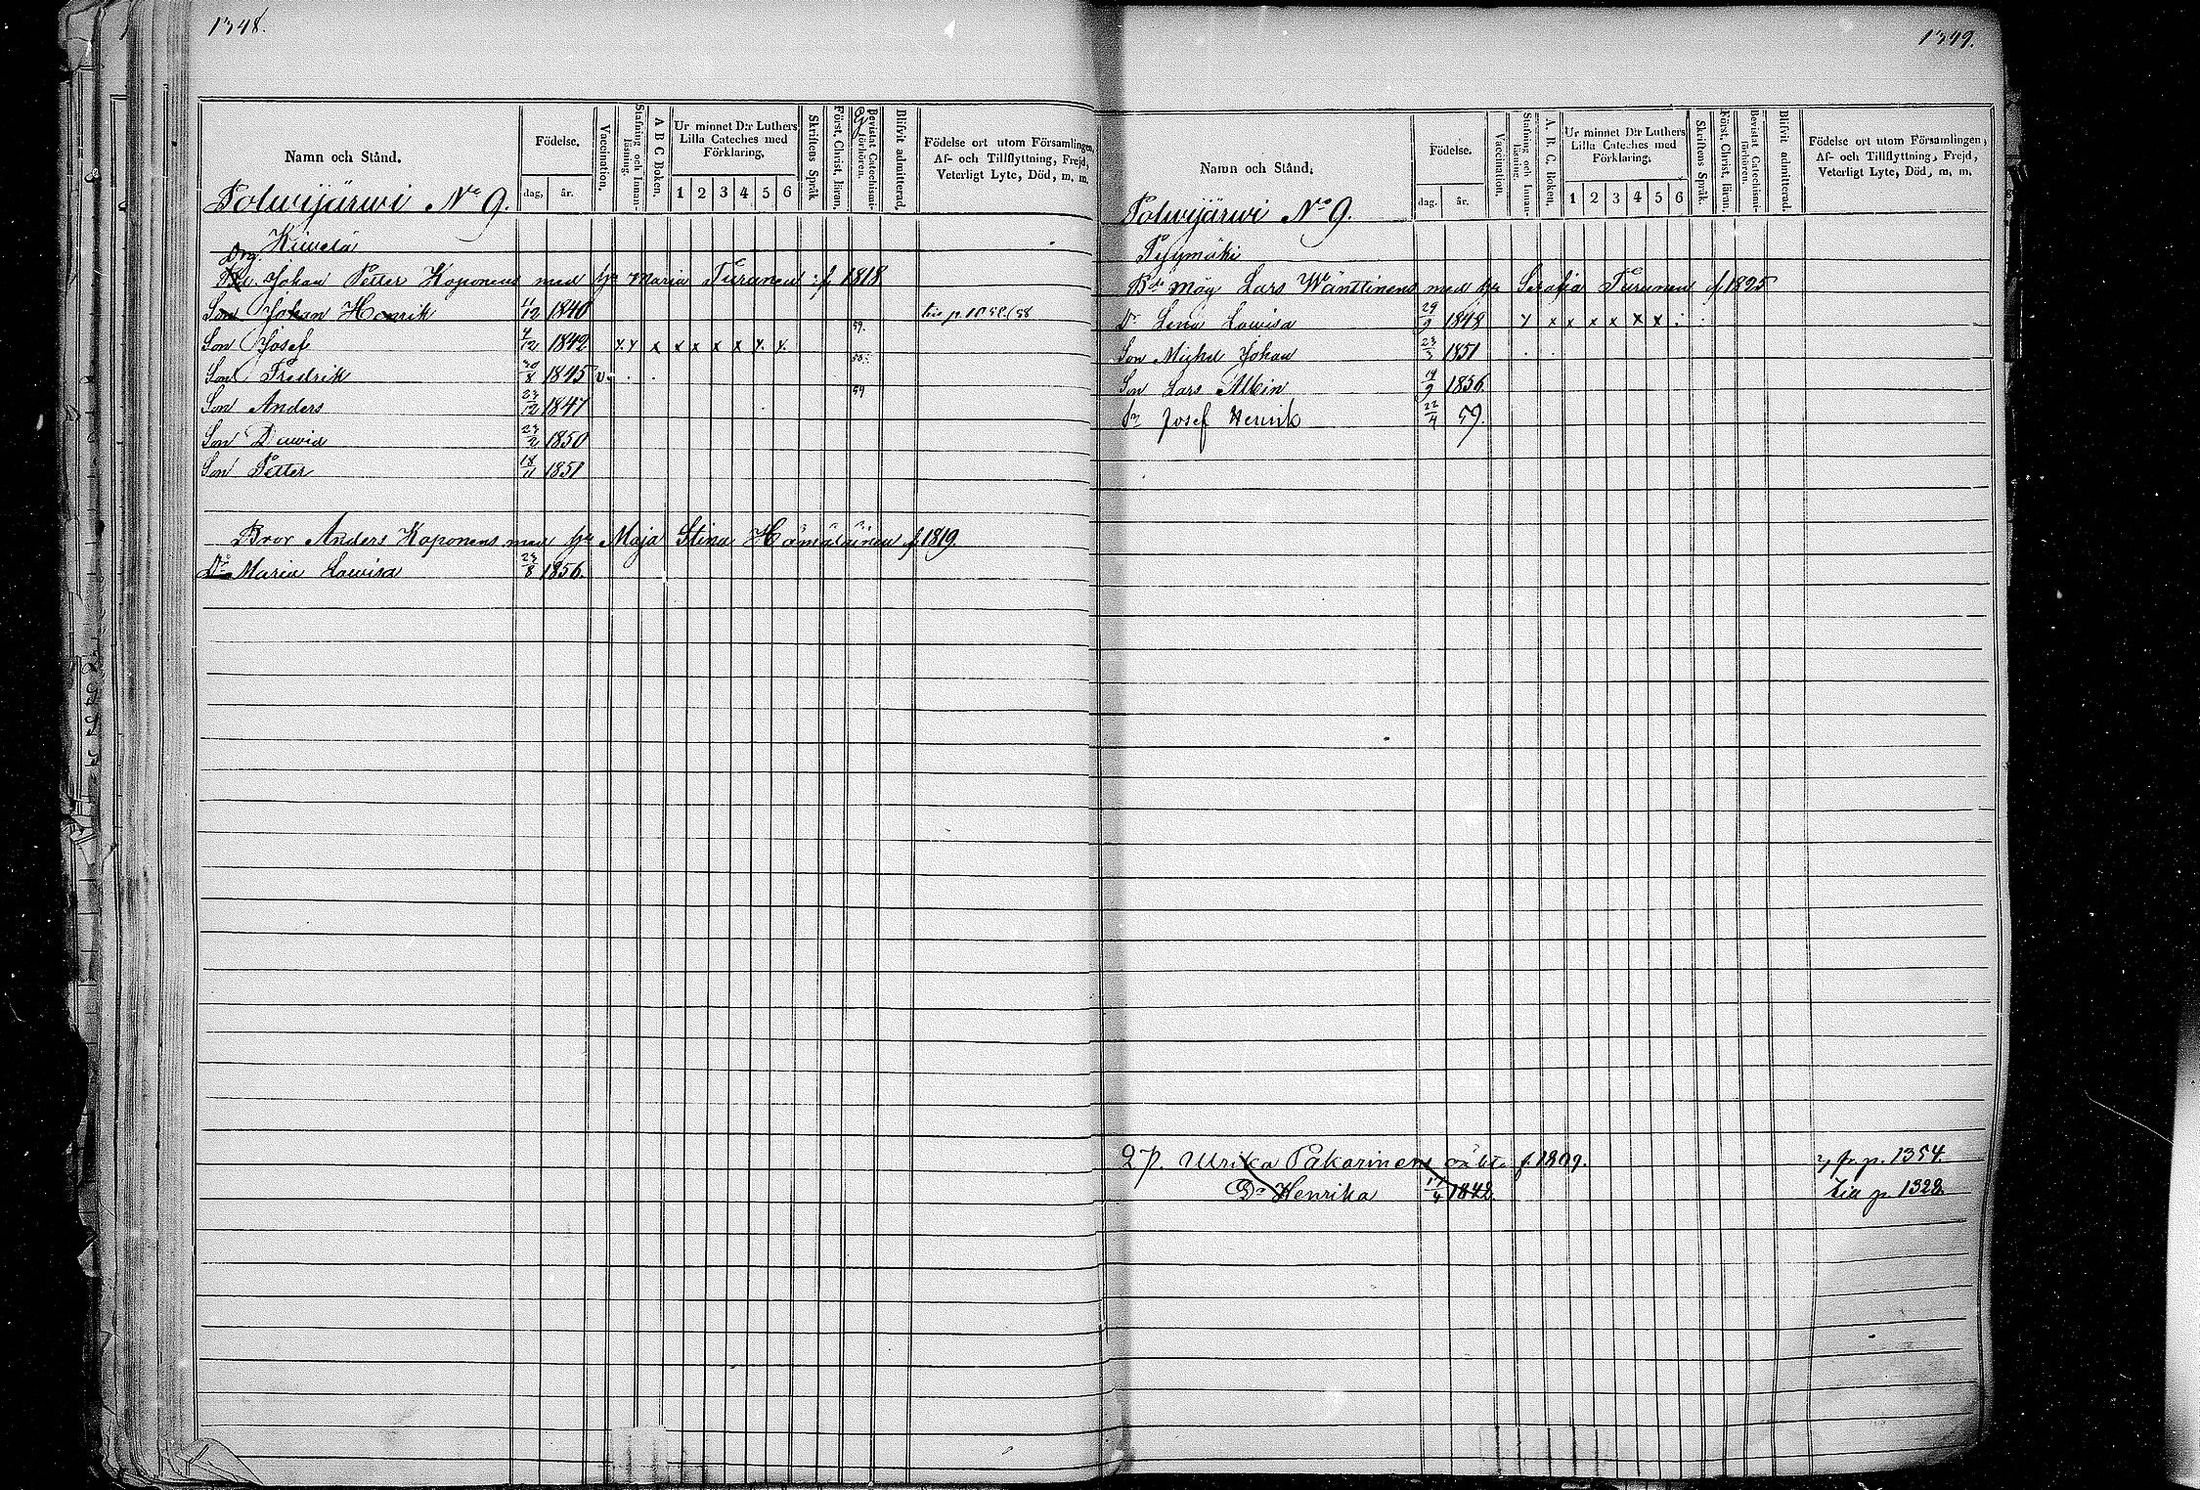 1348.
Namn och Stånd.
Födelse.
dag, år.
Vaccination,
Stafning och Innan-läsning.
A B C Boken.
Ur minnet D:r Luthers Lilla Cateches med Förklaring,
1 2 3 4 5 6
Skriftens Språk
Först. Christ, läran,
Bevistat Catechismi-förhören.
Blifvit admitterad.
Födelse ort utom Församlingen,
Af- och Tillflyttning, Frejd,
Veterligt Lyte, Död, m. m.
Polwijärwi No 9.
Kiwelä
Drg. Johan Petter Koponens med hu Maria Turunen f 1818
Son Johan Henrik 4/12 1840
Son Josef 4/12 1842 x x x x x x x x x 59.
Son Fredrik 30/8 1845 v. 58.
Son Anders 23/12 1847 59
Son Dawid 27/2 1850
Son Petter 18/11 1851
Bror Anders Koponens med hu Maja Stina Hämäläinen f 1819.
Dr Maria Lowisa 23/8 1856.
1349.
Namn och Stånd.
Födelse.
dag. år.
Vaccination.
Stafning och Innan-läsning.
A. B. C. Boken.
Ur minnet D:r Luthers Lilla Cateches med Förklaring.
1 2 3 4 5 6
Skriftens Språk.
Först. Christ, läran.
Bevistat Catechismi-förhören.
Blifvit admitterad.
Födelse ort utom Församlingen,
Af- och Tillflyttning, Frejd,
Veterligt Lyte, Död, m. m.
Polwijärwi No 9.
Pesymäki
Bde måg Lars Wänttinens med hu Serafia Turunen f 1825
Dr Lena Lowisa 29/9 1848 x x x x x x x
Son Michel Johan 23/3 1851
Son Lars Albin 19/9 1856.
Sn Josef Henrik 22/4 59.
Ulrika Pakarinens f. 1809. p. 1354.
Dr Henrika 17/4 1842. p. 1328.